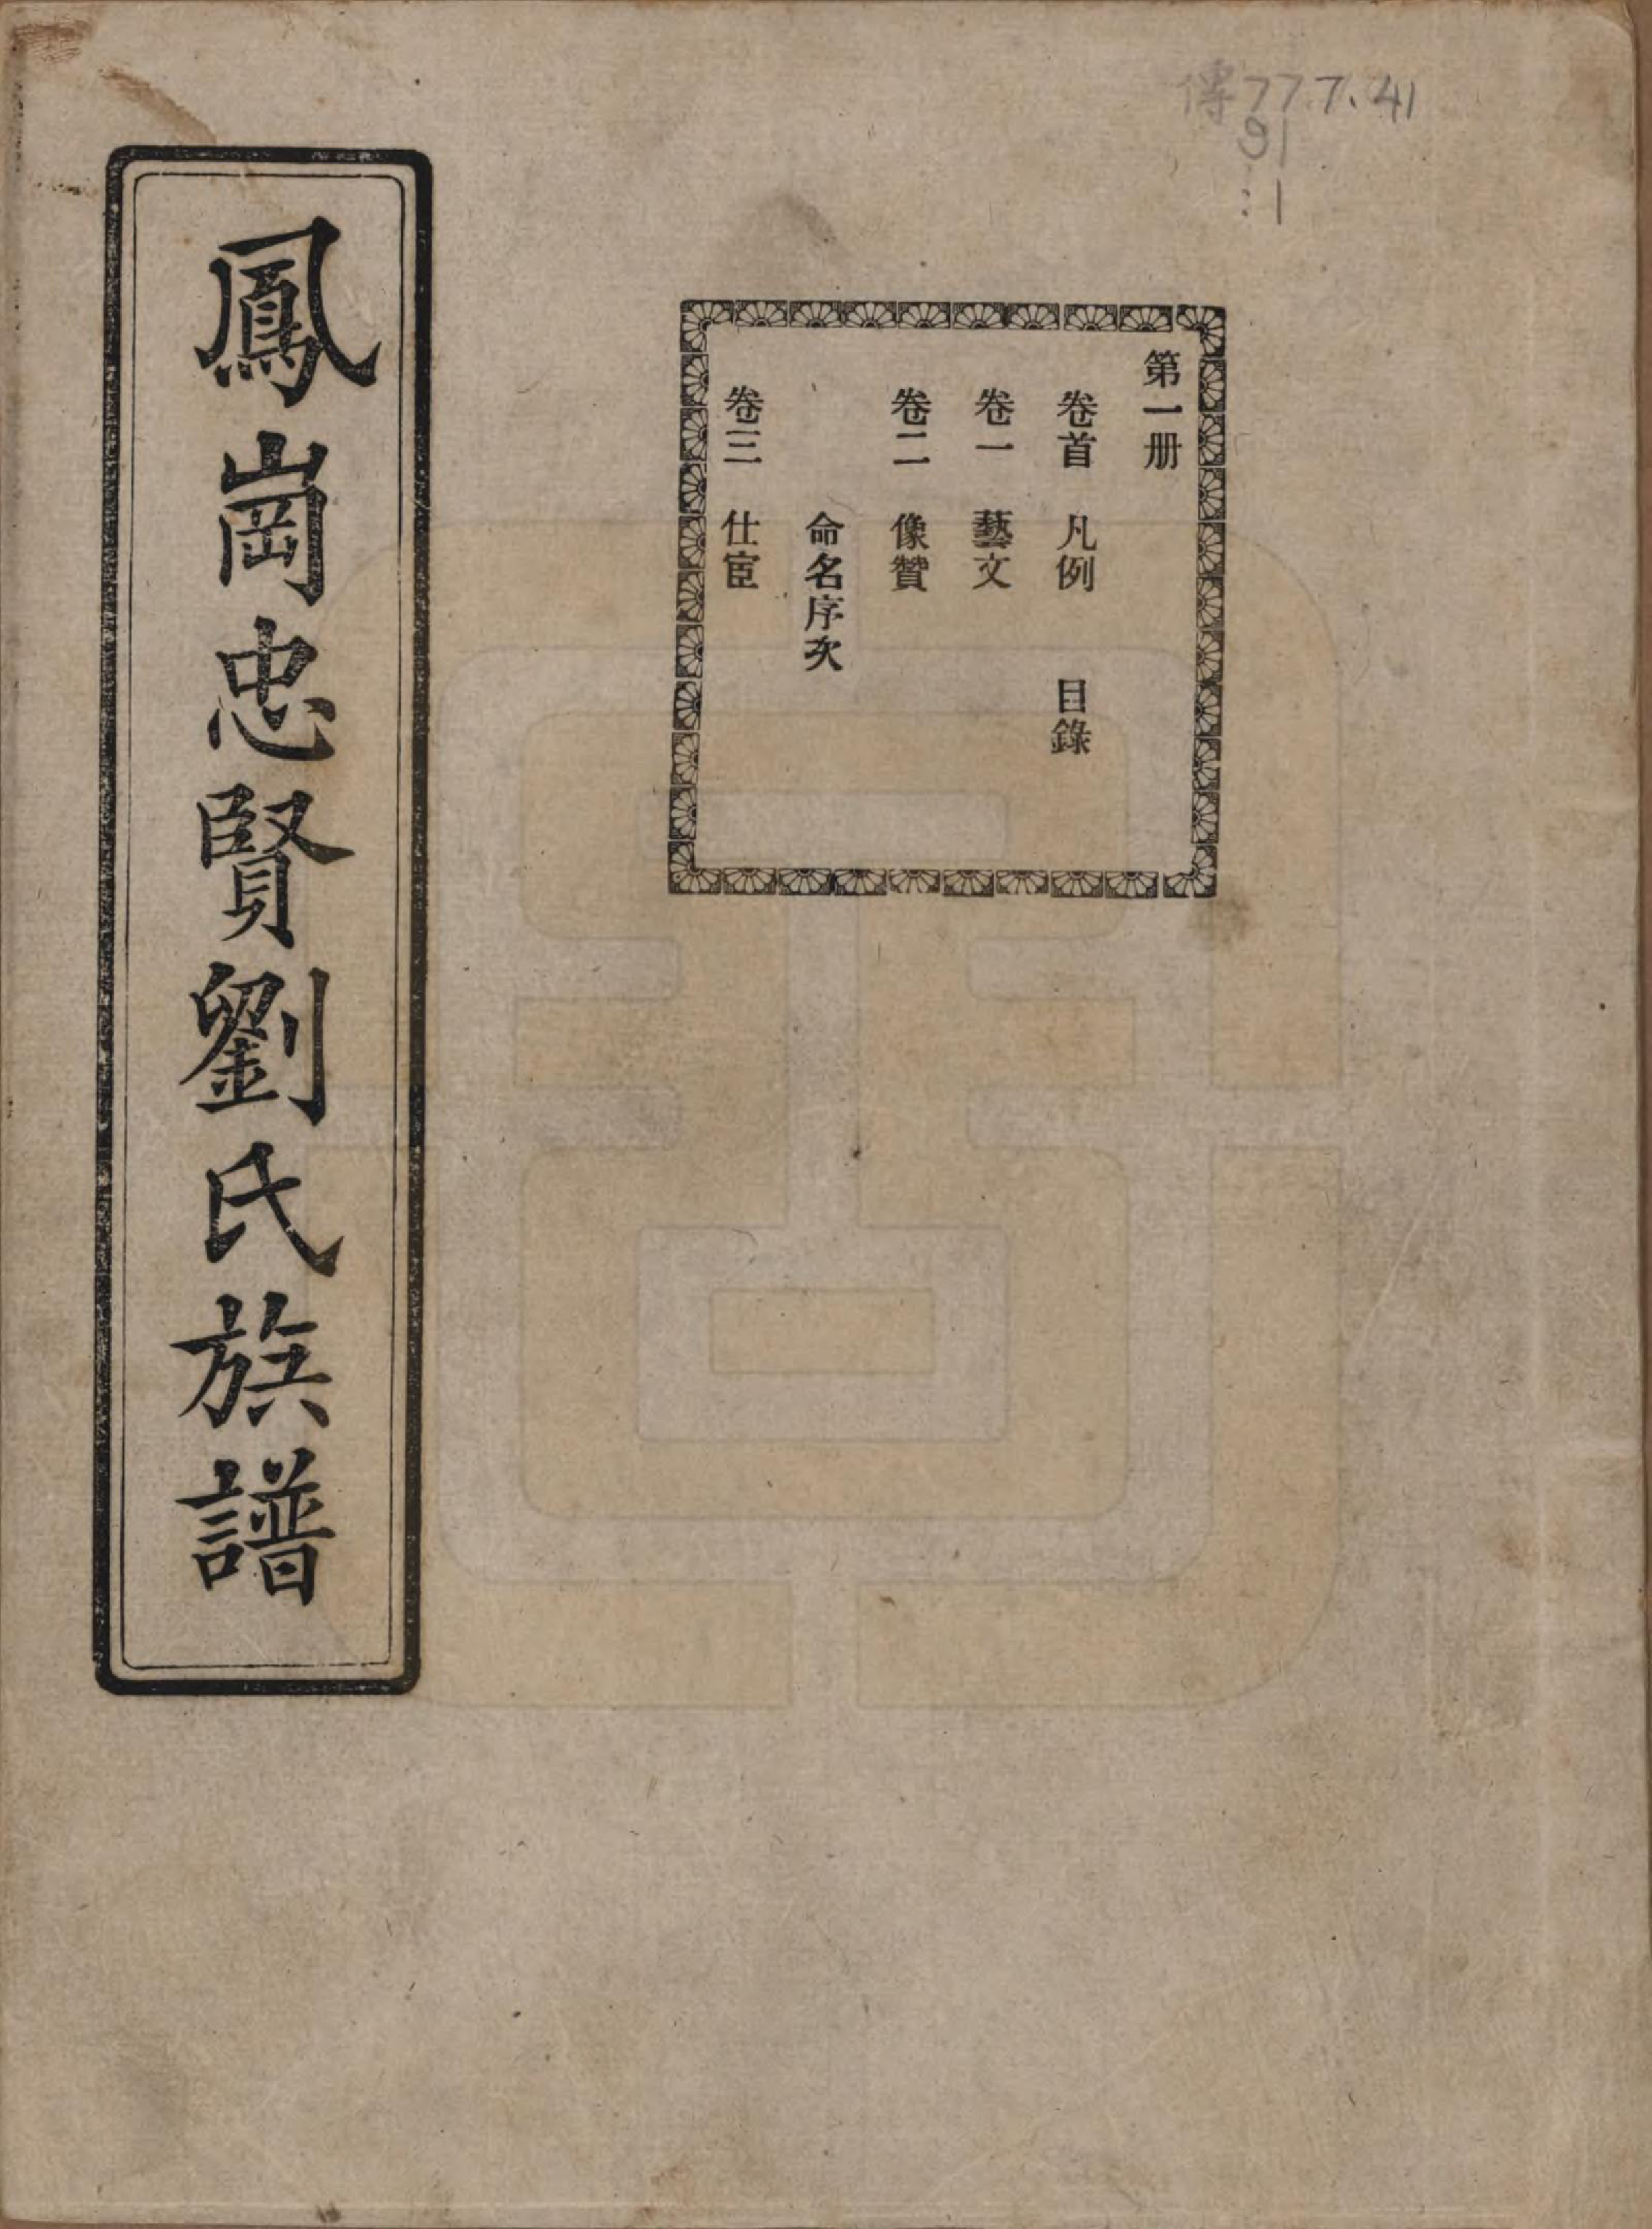 傳777.41
91
:1
第一册
卷首 凡例 目錄
卷一 藝文
卷二 像贊
命名序次
卷三 仕宦
鳳崗忠賢劉氏族譜